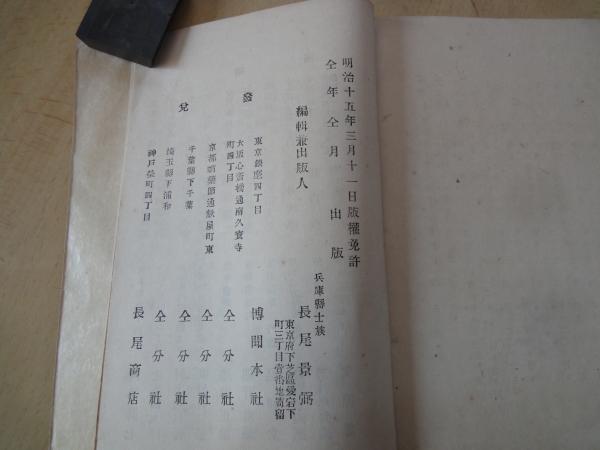 明治十五年三月十一日版權免許
仝年仝月 出版
兵庫縣士族
編輯兼出版人 長尾景弼
東京府下芝區愛宕下
町三丁目壹番地寄留
發兌
東京銀座四丁目 博聞本社
大坂心斎橋通南久寶寺
町四丁目 仝分社
京都
通
屋町東 仝分社
千葉縣下千葉 仝分社
埼玉縣下浦和 仝分社
神戸榮町四丁目 長尾商店